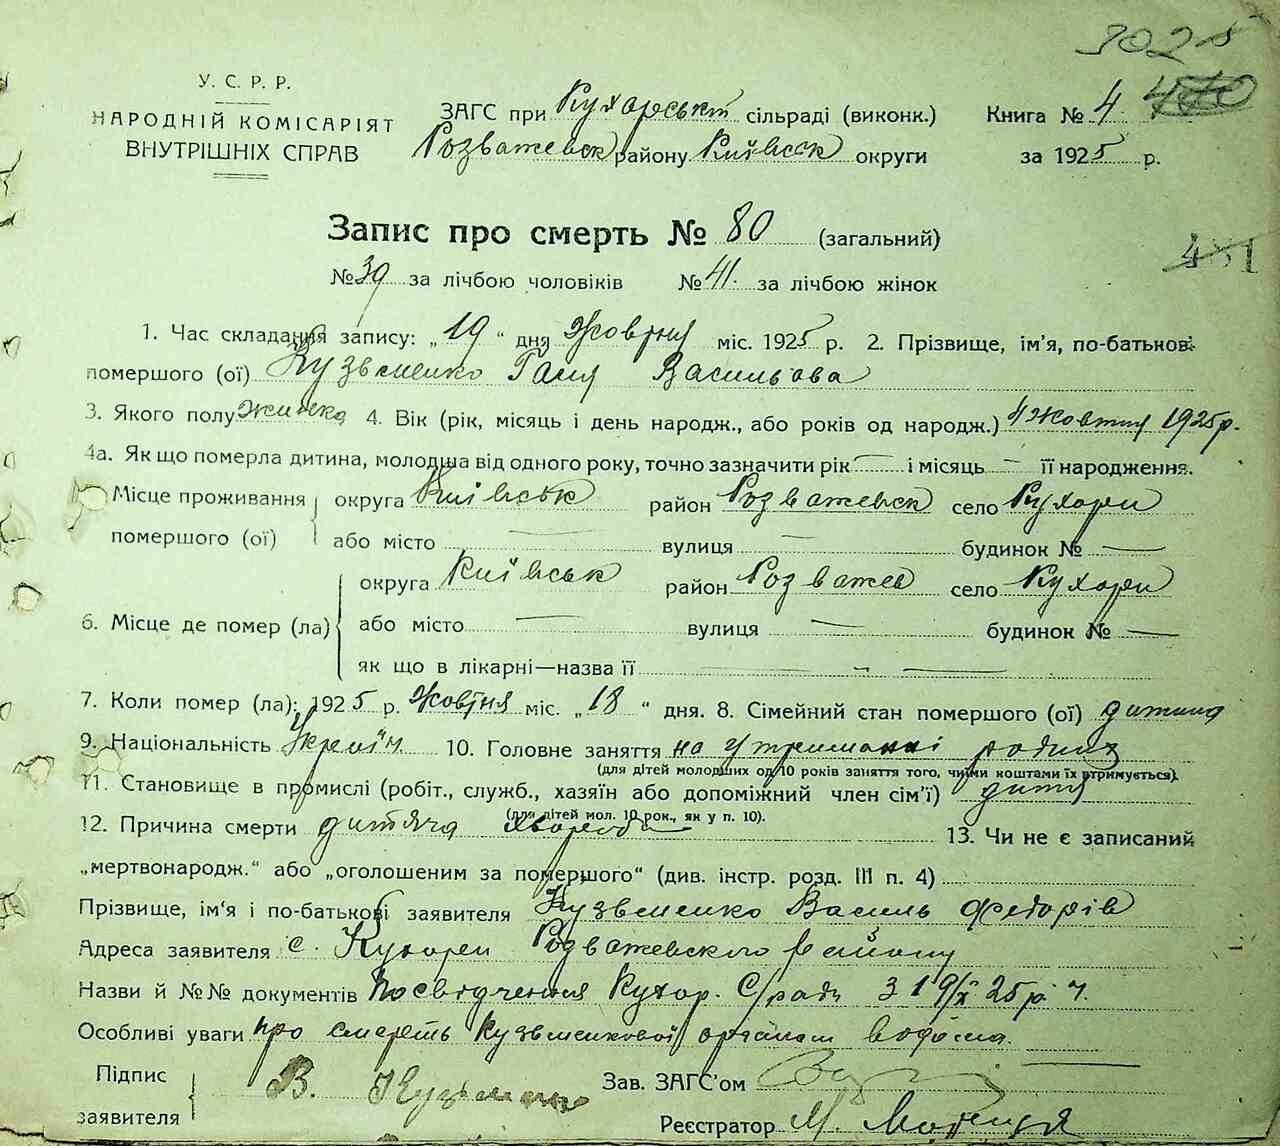 3025
У. С. Р. Р.
НАРОДНІЙ КОМІСАРІЯТ
ВНУТРІШНІХ СПРАВ
ЗАГС при Кухарськ сільраді (виконк.) Книга № 4
Розважевск району Київськ округи за 1925 р.
Запис про смерть № 80 (загальний)
431
№ 39 за лічбою чоловіків № 41. за лічбою жінок
1. Час складання запису: „ 19 “ дня Жовтня міс. 1925 р. 2. Прізвище, ім'я, по-батькові
помершого (ої) Кузьменко Ганя Васильова
3. Якого полу жинка 4. Вік (рік, місяць і день народж., або років од народж.) 4 жовтня 1925 р.
4а. Як що померла дитина, молодша від одного року, точно зазначити рік — і місяць — її народження.
Місце проживання помершого (ої) округа Київськ район Розважевск село Кухари
або місто — вулиця — будинок № —
6. Місце де помер (ла) округа Київськ район Розважев село Кухари
або місто — вулиця — будинок № —
як що в лікарні—назва її — „ —
7. Коли помер (ла): 1925 р. Жовтня міс. „ 18 “ дня. 8. Сімейний стан помершого (ої) дитина
9. Національність Україн 10. Головне заняття на утриманні родини
(для дітей молодших од 10 років заняття того, чиїми коштами їх втримується).
11. Становище в промислі (робіт., служб., хазяїн або допоміжний член сім'ї) дитя
(для дітей мол. 10 рок., як у п. 10).
12. Причина смерти дитяча хвороба 13. Чи не є записаний
„мертвонародж.“ або „оголошеним за помершого“ (див. інстр. розд. III п. 4)
Прізвище, ім'я і по-батькові заявителя Кузьменко Василь Федорів
Адреса заявителя с. Кухари Розважевского району
Назви й №№ документів Посвідчення Кухор. С/ради з 19/X 25 р.
Особливі уваги про смерть Кузьменкової
Підпис заявителя В. Кузьменко Зав. ЗАГС'ом
Реєстратор М.